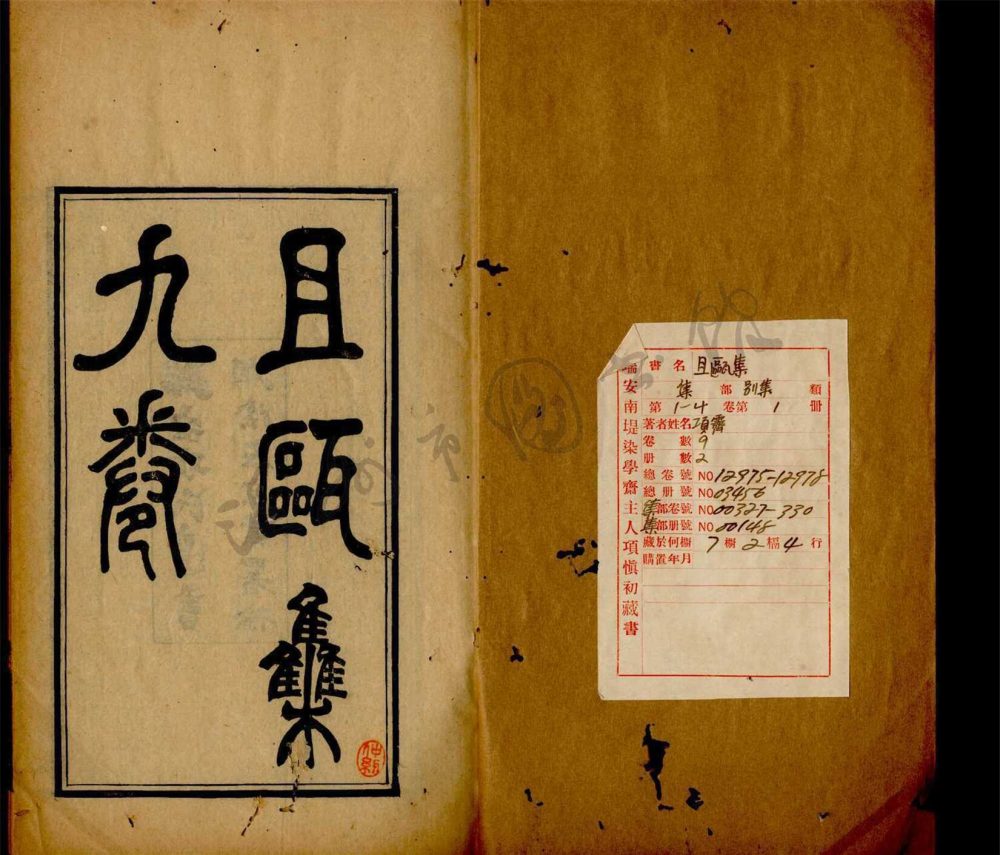 且甌集
九卷
瑞安南堤染學齋主人項愼初藏書
書名 且甌集
集 部 別集 類
第 1-4 卷第 1 冊
著者姓名 項霽
卷數 9
册數 2
總卷號 NO 12975-12978
總册號 NO 03456
集部卷號 NO 00327-330
集部册號 NO 00148
藏於何櫥 7 櫥 2 槅 4 行
購置年月